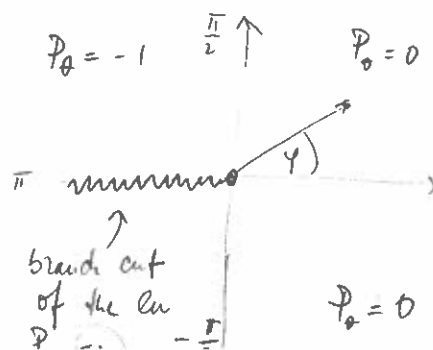 P_θ = - 1
π/2
P_θ = 0
φ
π
branch cut
of the ln
P_θ = 0
P
- π